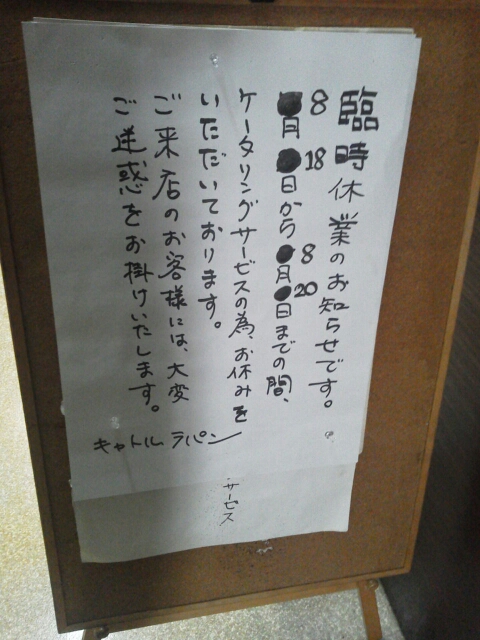 臨時休業のお知らせです。
8月18日から8月20日までの間、
ケータリングサービスの為、お休みを
いただいております。
ご来店のお客様には、大変
ご迷惑をお掛けいたします。
キャトルラパン
サービス